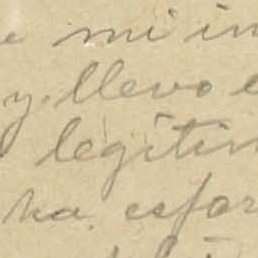 e mi in
y. llevo e
legítim
ha esfor